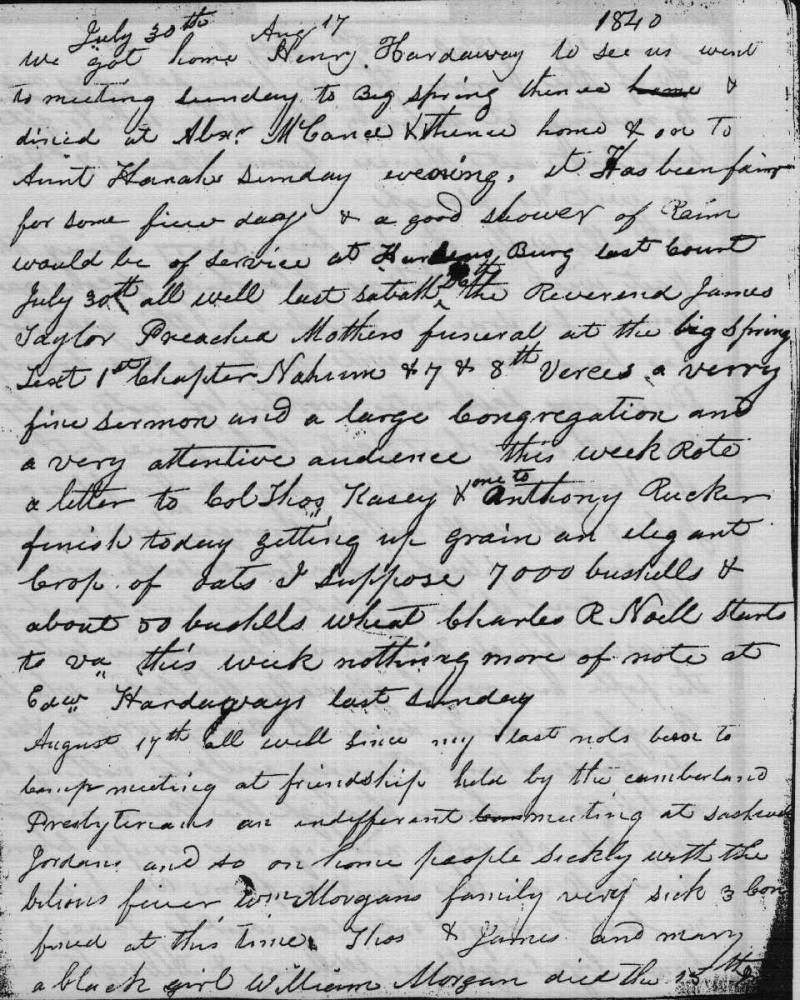 July 30th Aug 17 1840
we got home Henry Hardaway to see us went
to meeting sunday to Big Spring thence home &
dined at Abxr McCance & thence home & on To
Aunt Hanah sunday evening, it Has been fair
for some fiew days & a good shower of Rain
would be of service at Hardens Burg last Court
July 30th all well last sabath 26th the Reverend James
Taylor Preached Mothers funeral at the big Spring
Text 1st Chapter Nahum & 7 & 8th Verces a verry
fine sermon and a large Congregation and
a very attentive audience this week Rote
a letter to Col Thos Kasey & one to Anthony Rucker
finish today getting up grain an elegant
Crop of oats I suppose 7000 bushells &
about 50 bushlls wheat Charles R Noell starts
to va this week nothing more of note at
Edw Hardaways last sunday
August 17th all well since my last nots been to
Camp meeting at friendship held by the cumberland
Presbyterians an indifferent meeting at
Jordans and so on home people sickly with the
bilious fever Wm Morgans family very sick 3 Con
fined at this time Thos & James and mary
a black girl William Morgan died the 15th